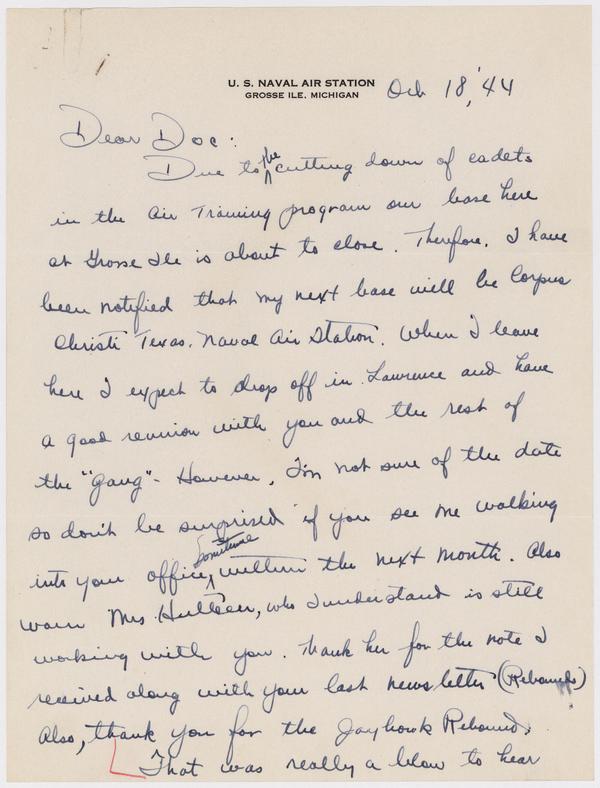 U. S. NAVAL AIR STATION
GROSSE ILE, MICHIGAN
Oct 18, '44
Dear Doc:
Due to the cutting down of cadets
in the Air Training program our base here
at Grosse Ile is about to close. Therefore, I have
been notified that my next base will be Corpus
Christi Texas, Naval Air Station. When I leave
here I expect to drop off in Lawrence and have
a good reunion with you and the rest of
the "Gang" - However, I'm not sure of the date
so don't be surprised if you see me walking
into your office, sometime within the next month. Also
warn Mrs. Hultseen, who I understand is still
working with you. Thank her for the note I
received along with your last newsletter (Rebounds)
Also, thank you for the Jayhawk Rebound.
That was really a blow to hear